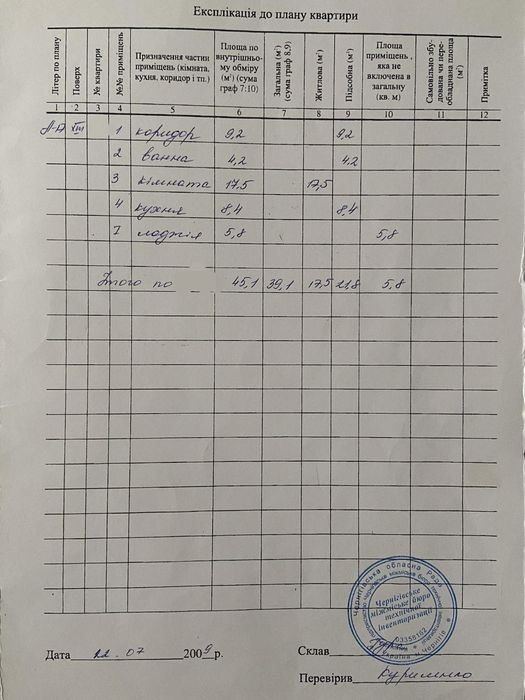 Експлікація до плану квартири
Літер по плану
Поверх
№ квартири
№№ приміщень
Призначення частин приміщень (кімната, кухня, коридор і тп.)
Площа по внутрішньому обміру (м²) (сума граф 7:10)
Загальна (м²) (сума граф 8,9)
Житлова (м²)
Підсобна (м²)
Площа приміщень, яка не включена в загальну (кв. м)
Самовільно збудована чи переобладнана площа (м²)
Примітка
1 2 3 4 5 6 7 8 9 10 11 12
1 коридор 9,2 9,2
2 ванна 4,2 4,2
3 кімната 17,5 17,5
4 кухня 8,4 8,4
I лоджія 5,8 5,8
Итого по 45,1 39,1 17,5 21,8 5,8
Чернігівська обласна Рада
Чернігівське
міжміське бюро
технічної
інвентаризації
03358102
Україна м. Чернігів
Дата 22.07 2009 р.
Склав
Перевірив Куриленко